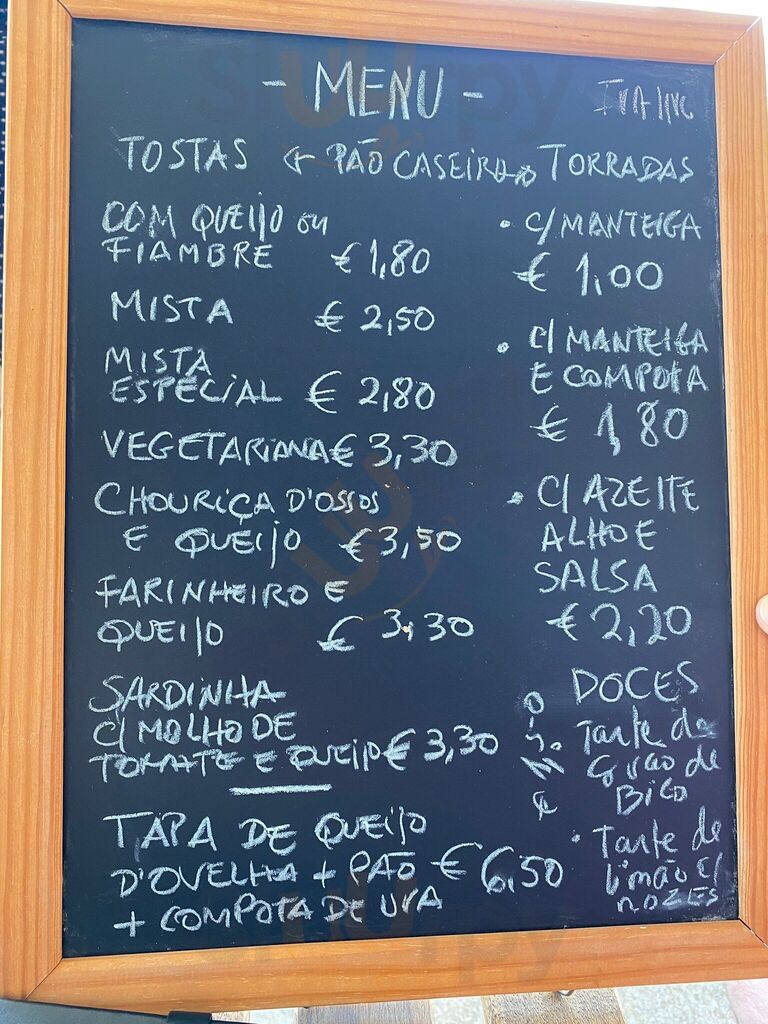 - MENU -
IVA INC
TOSTAS ← PÃO CASEIRO → TORRADAS
COM QUEIJO OU
FIAMBRE € 1,80
MISTA € 2,50
MISTA
ESPECIAL € 2,80
VEGETARIANA € 3,30
CHOURIÇA D'OSSOS
E QUEIJO € 3,50
FARINHEIRO E
QUEIJO € 3,30
SARDINHA
C/ MOLHO DE
TOMATE E QUEIJO € 3,30
TAPA DE QUEIJO
D'OVELHA + PÃO € 6,50
+ COMPOTA DE UVA
• C/ MANTEIGA
€ 1,00
• C/ MANTEIGA
E COMPOTA
€ 1,80
• C/ AZEITE
ALHO E
SALSA
€ 2,20
DOCES
Tarte de
Grao de
BICO
• Tarte de
limão c/
nozes